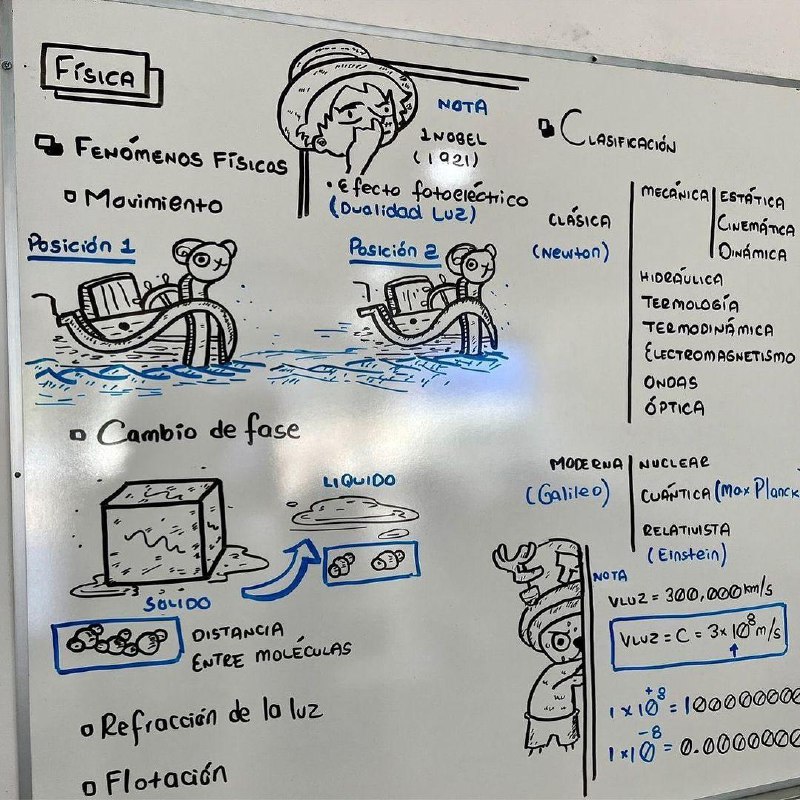 FÍSICA
FENÓMENOS FÍSICOS
Movimiento
Posición 1
Posición 2
NOTA
1 NOBEL
(1921)
• Efecto fotoeléctrico
(Dualidad Luz)
Cambio de fase
SÓLIDO
LIQUIDO
DISTANCIA
ENTRE MOLÉCULAS
Refracción de la luz
Flotación
CLASIFICACIÓN
CLÁSICA
(Newton)
MECÁNICA
ESTÁTICA
CINEMÁTICA
DINÁMICA
HIDRÁULICA
TERMOLOGÍA
TERMODINÁMICA
ELECTROMAGNETISMO
ONDAS
ÓPTICA
MODERNA
(Galileo)
NUCLEAR
CUÁNTICA (Max Planck
RELATIVISTA
(Einstein)
NOTA
VLUZ = 300,000 km/s
VLUZ = C = 3x10⁸ m/s
1x10⁺⁸ = 100000000
1x10⁻⁸ = 0.0000000